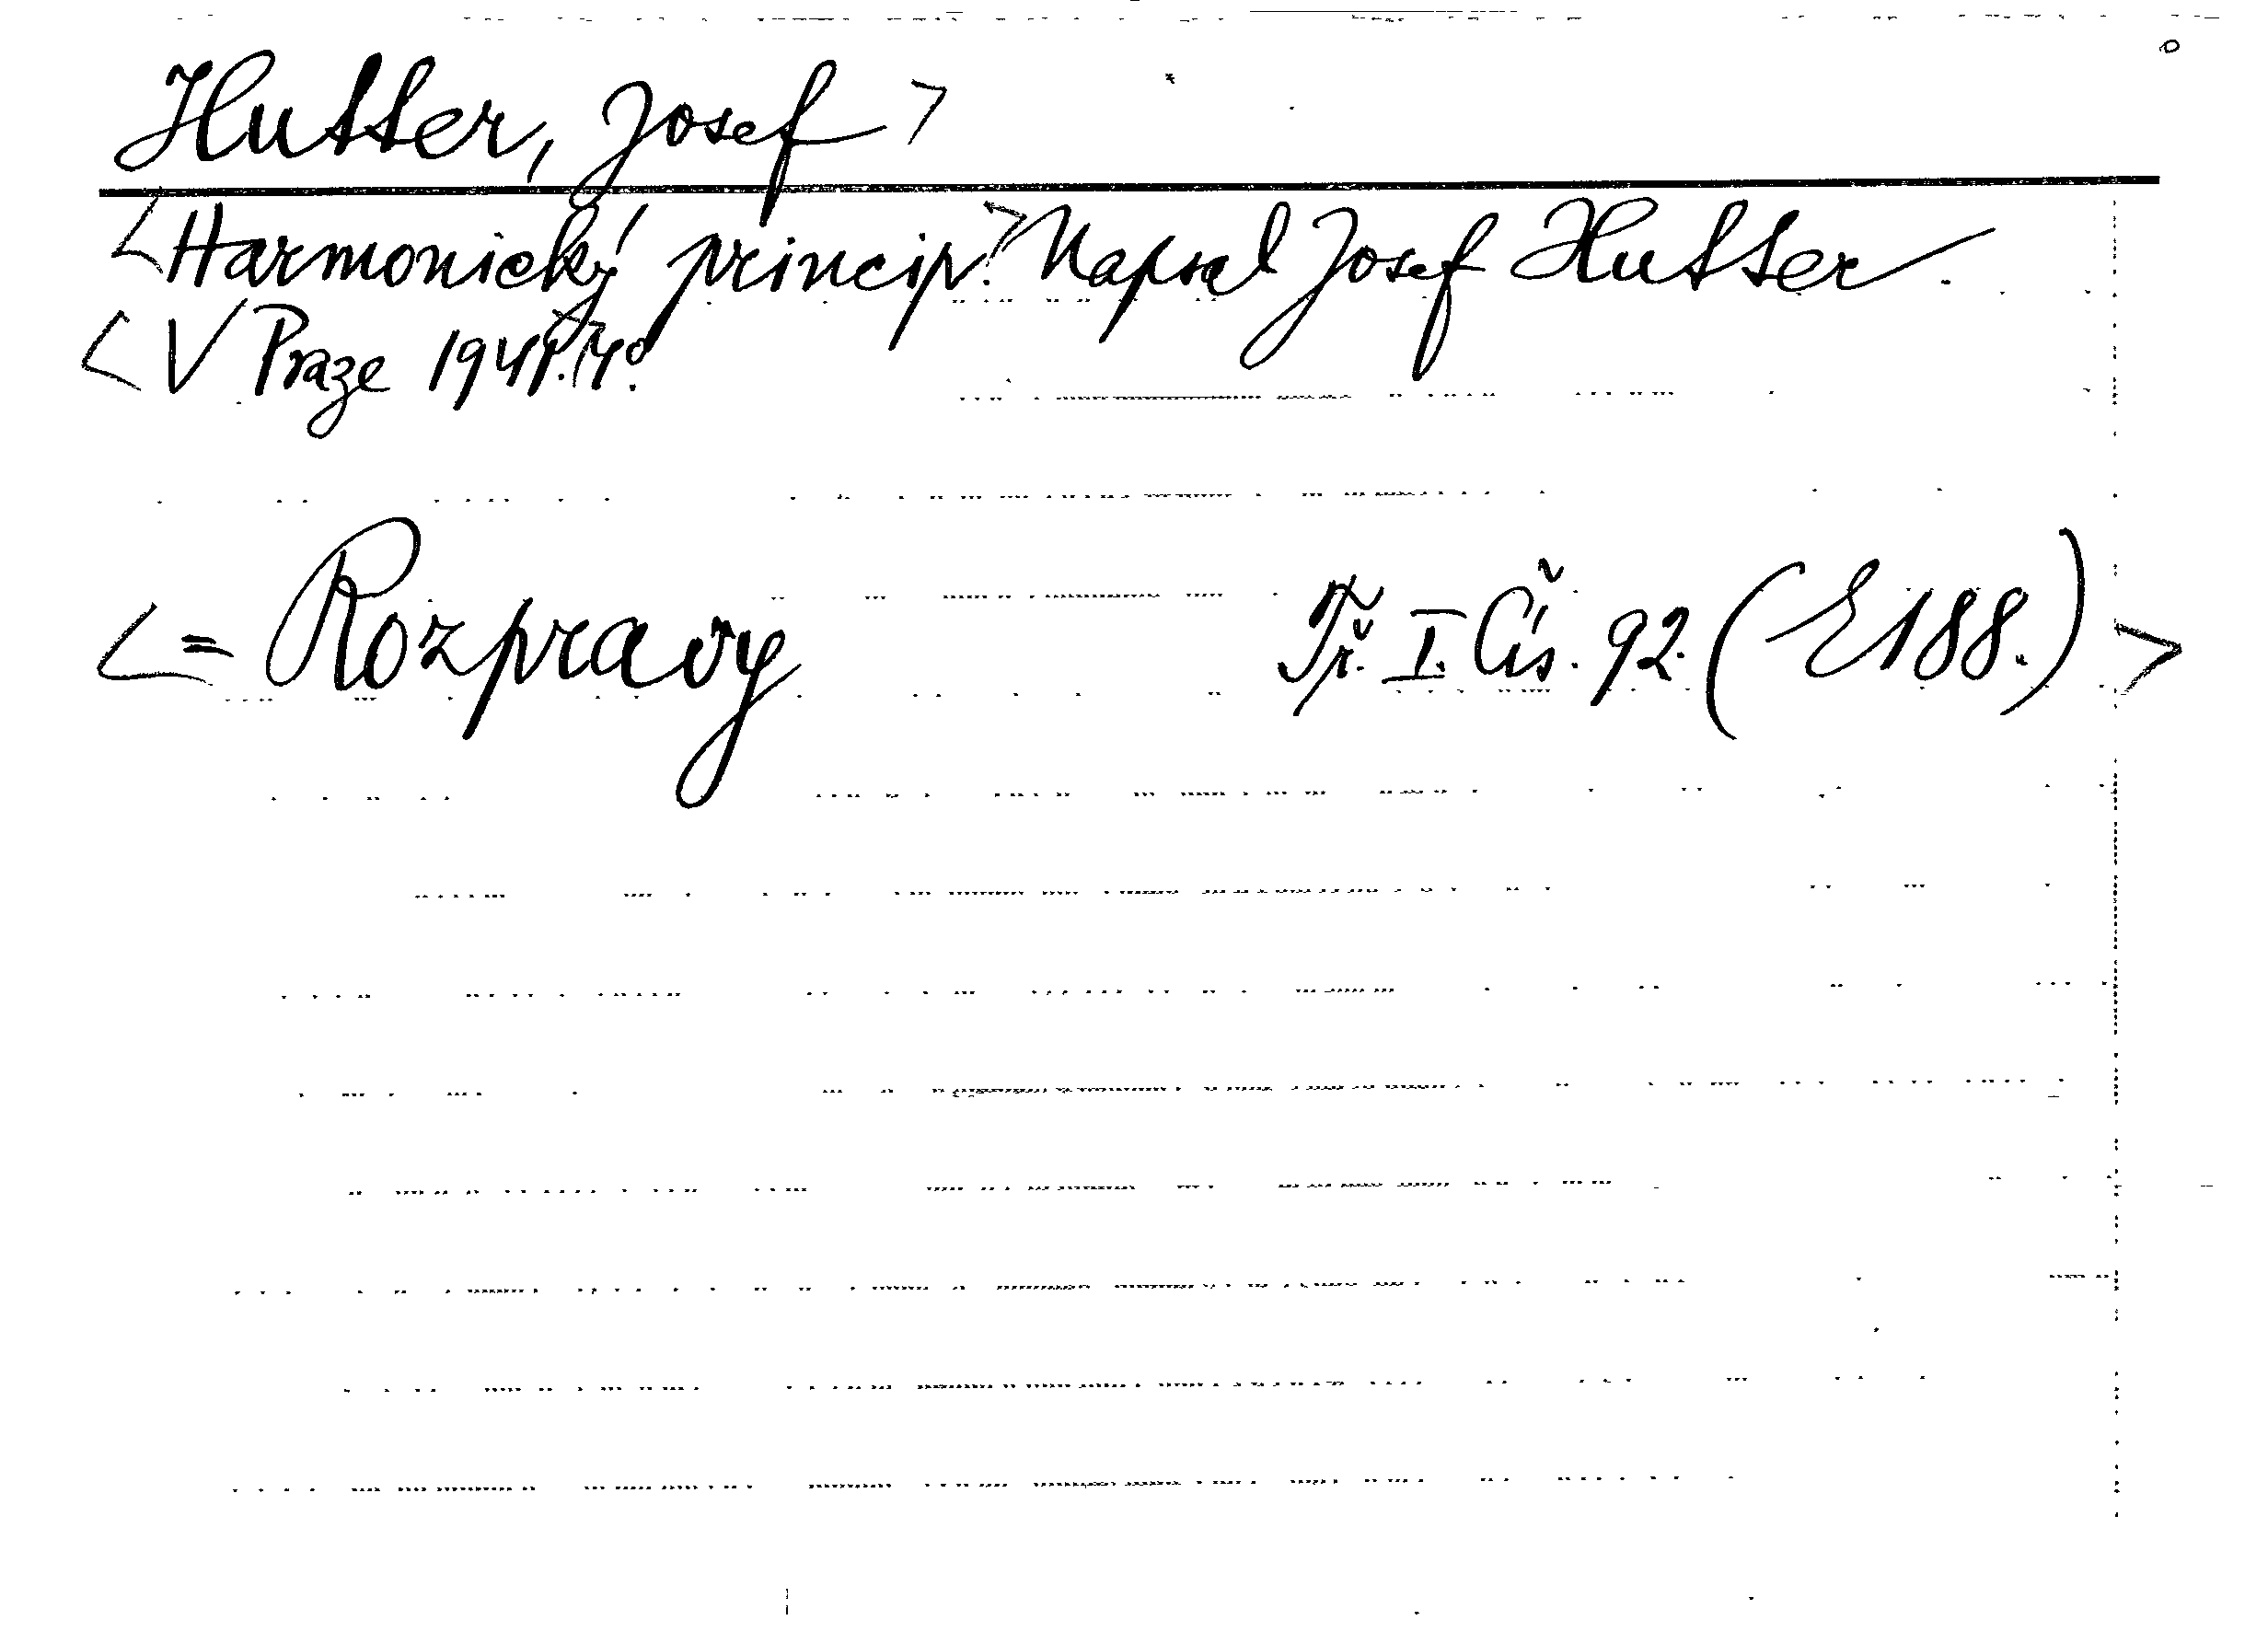 Hutter, Josef >
<Harmonický princip.> Napsal Josef Hutter.
<V Praze 1941.> 4°.
<= Rozpravy Tř. I. Čís. 92. (E 188.) >